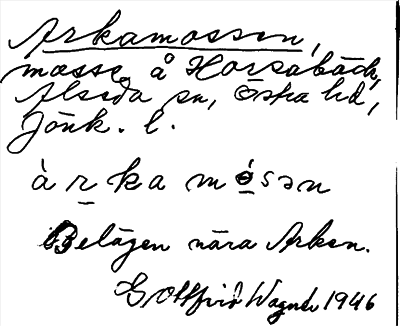 Arkamossen,
mosse å Horsabäck,
Alseda sn, Östra hd,
Jönk. l.
àrka mósən
Belägen nära Arken.
Gottfrid Wagner 1946